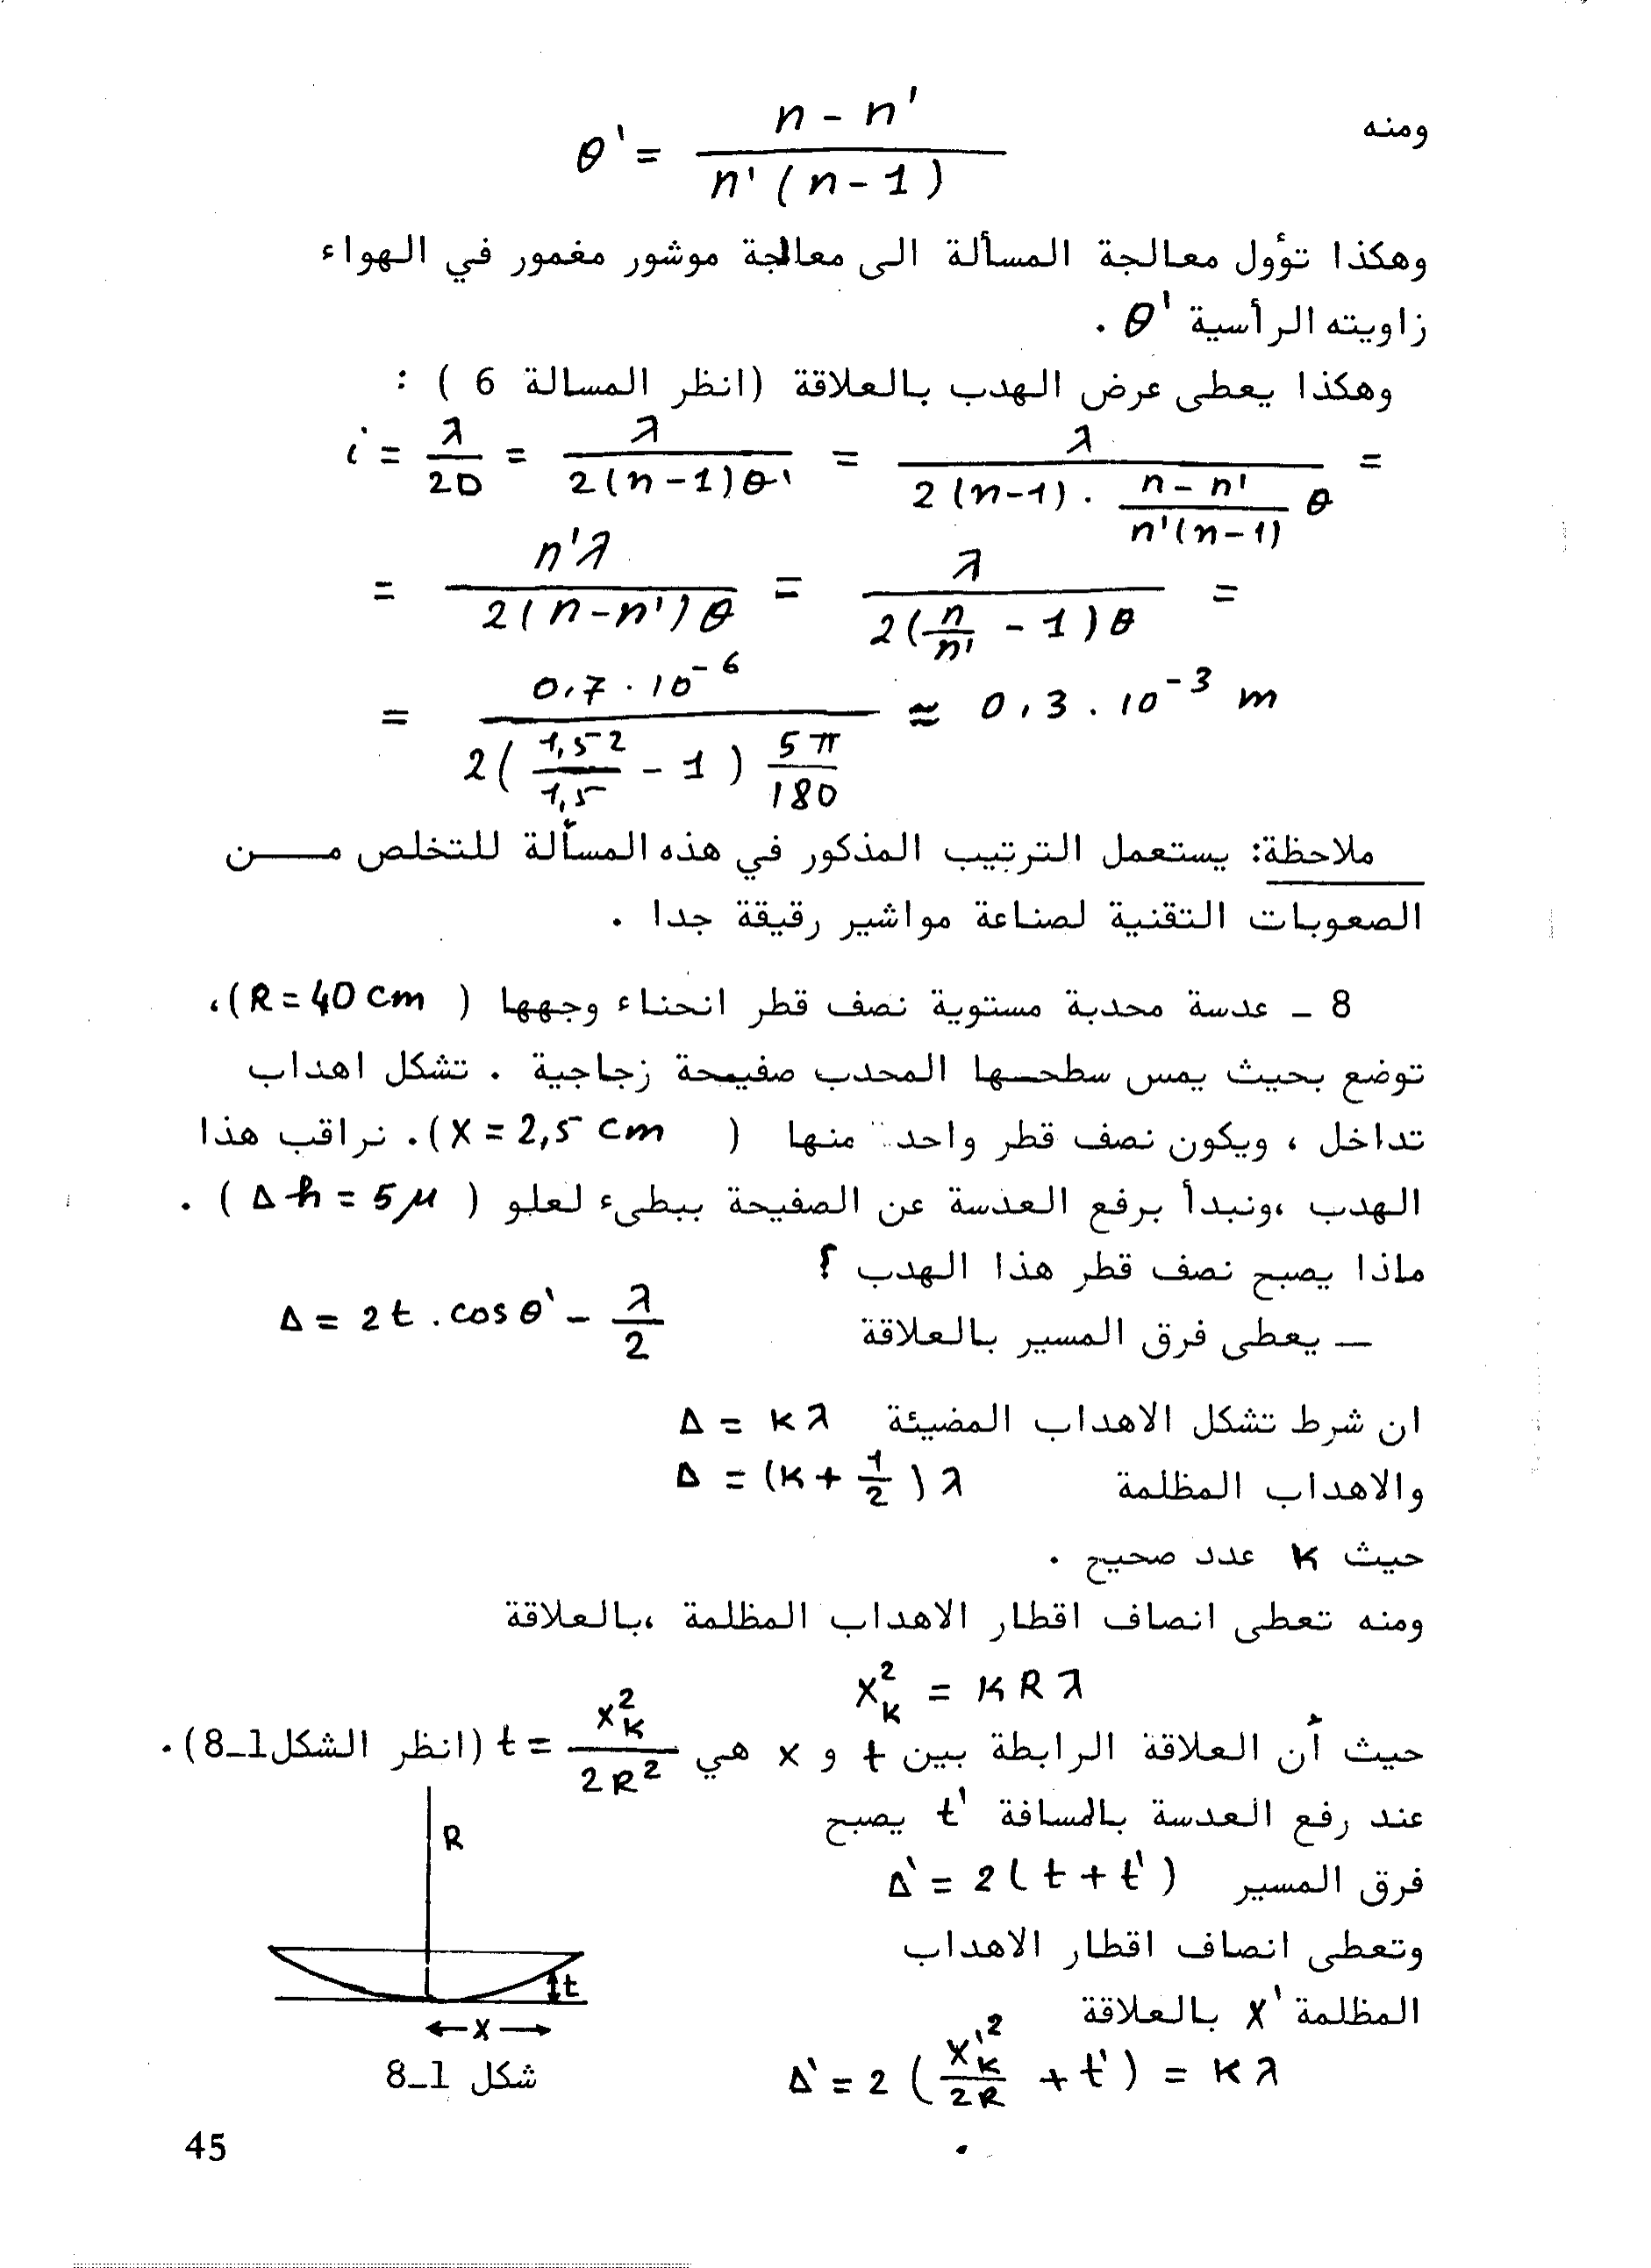 ومنه θ' = (n - n') / (n' (n - 1))
وهكذا تؤول معالجة المسألة الى معالجة موشور مغمور في الهواء
زاويته الرأسية θ' .
وهكذا يعطى عرض الهدب بالعلاقة (انظر المسالة 6 ) :
i = λ / 2D = λ / (2(n-1)θ') = λ / (2(n-1) . (n - n') / (n'(n-1)) θ) =
= n'λ / (2(n-n')θ) = λ / (2(n/n' - 1)θ) =
= 0,7 . 10⁻⁶ / (2(1,52/1,5 - 1) 5π/180) ≈ 0,3 . 10⁻³ m
ملاحظة: يستعمل الترتيب المذكور في هذه المسألة للتخلص مــن
الصعوبات التقنية لصناعة مواشير رقيقة جدا .
8 – عدسة محدبة مستوية نصف قطر انحناء وجهها ( R = 40 cm )،
توضع بحيث يمس سطحها المحدب صفيحة زجاجية . تشكل اهداب
تداخل ، ويكون نصف قطر واحد منها ( X = 2,5 cm ). نراقب هذا
الهدب ،ونبدأ برفع العدسة عن الصفيحة ببطىء لعلو ( Δh = 5μ ) .
ماذا يصبح نصف قطر هذا الهدب ؟
— يعطى فرق المسير بالعلاقة Δ = 2t . cos θ' - λ/2
ان شرط تشكل الاهداب المضيئة Δ = Kλ
والاهداب المظلمة Δ = (K + 1/2) λ
حيث K عدد صحيح .
ومنه تعطى انصاف اقطار الاهداب المظلمة ،بالعلاقة
X²_K = K R λ
حيث أن العلاقة الرابطة بين t و x هي t = X²_K / 2R² (انظر الشكل 1_8).
عند رفع العدسة بالمسافة t' يصبح
فرق المسير Δ' = 2( t + t' )
وتعطى انصاف اقطار الاهداب
المظلمة X' بالعلاقة
Δ' = 2 ( X'²_K / 2R + t' ) = K λ
R
t
X
شكل 1_8
45